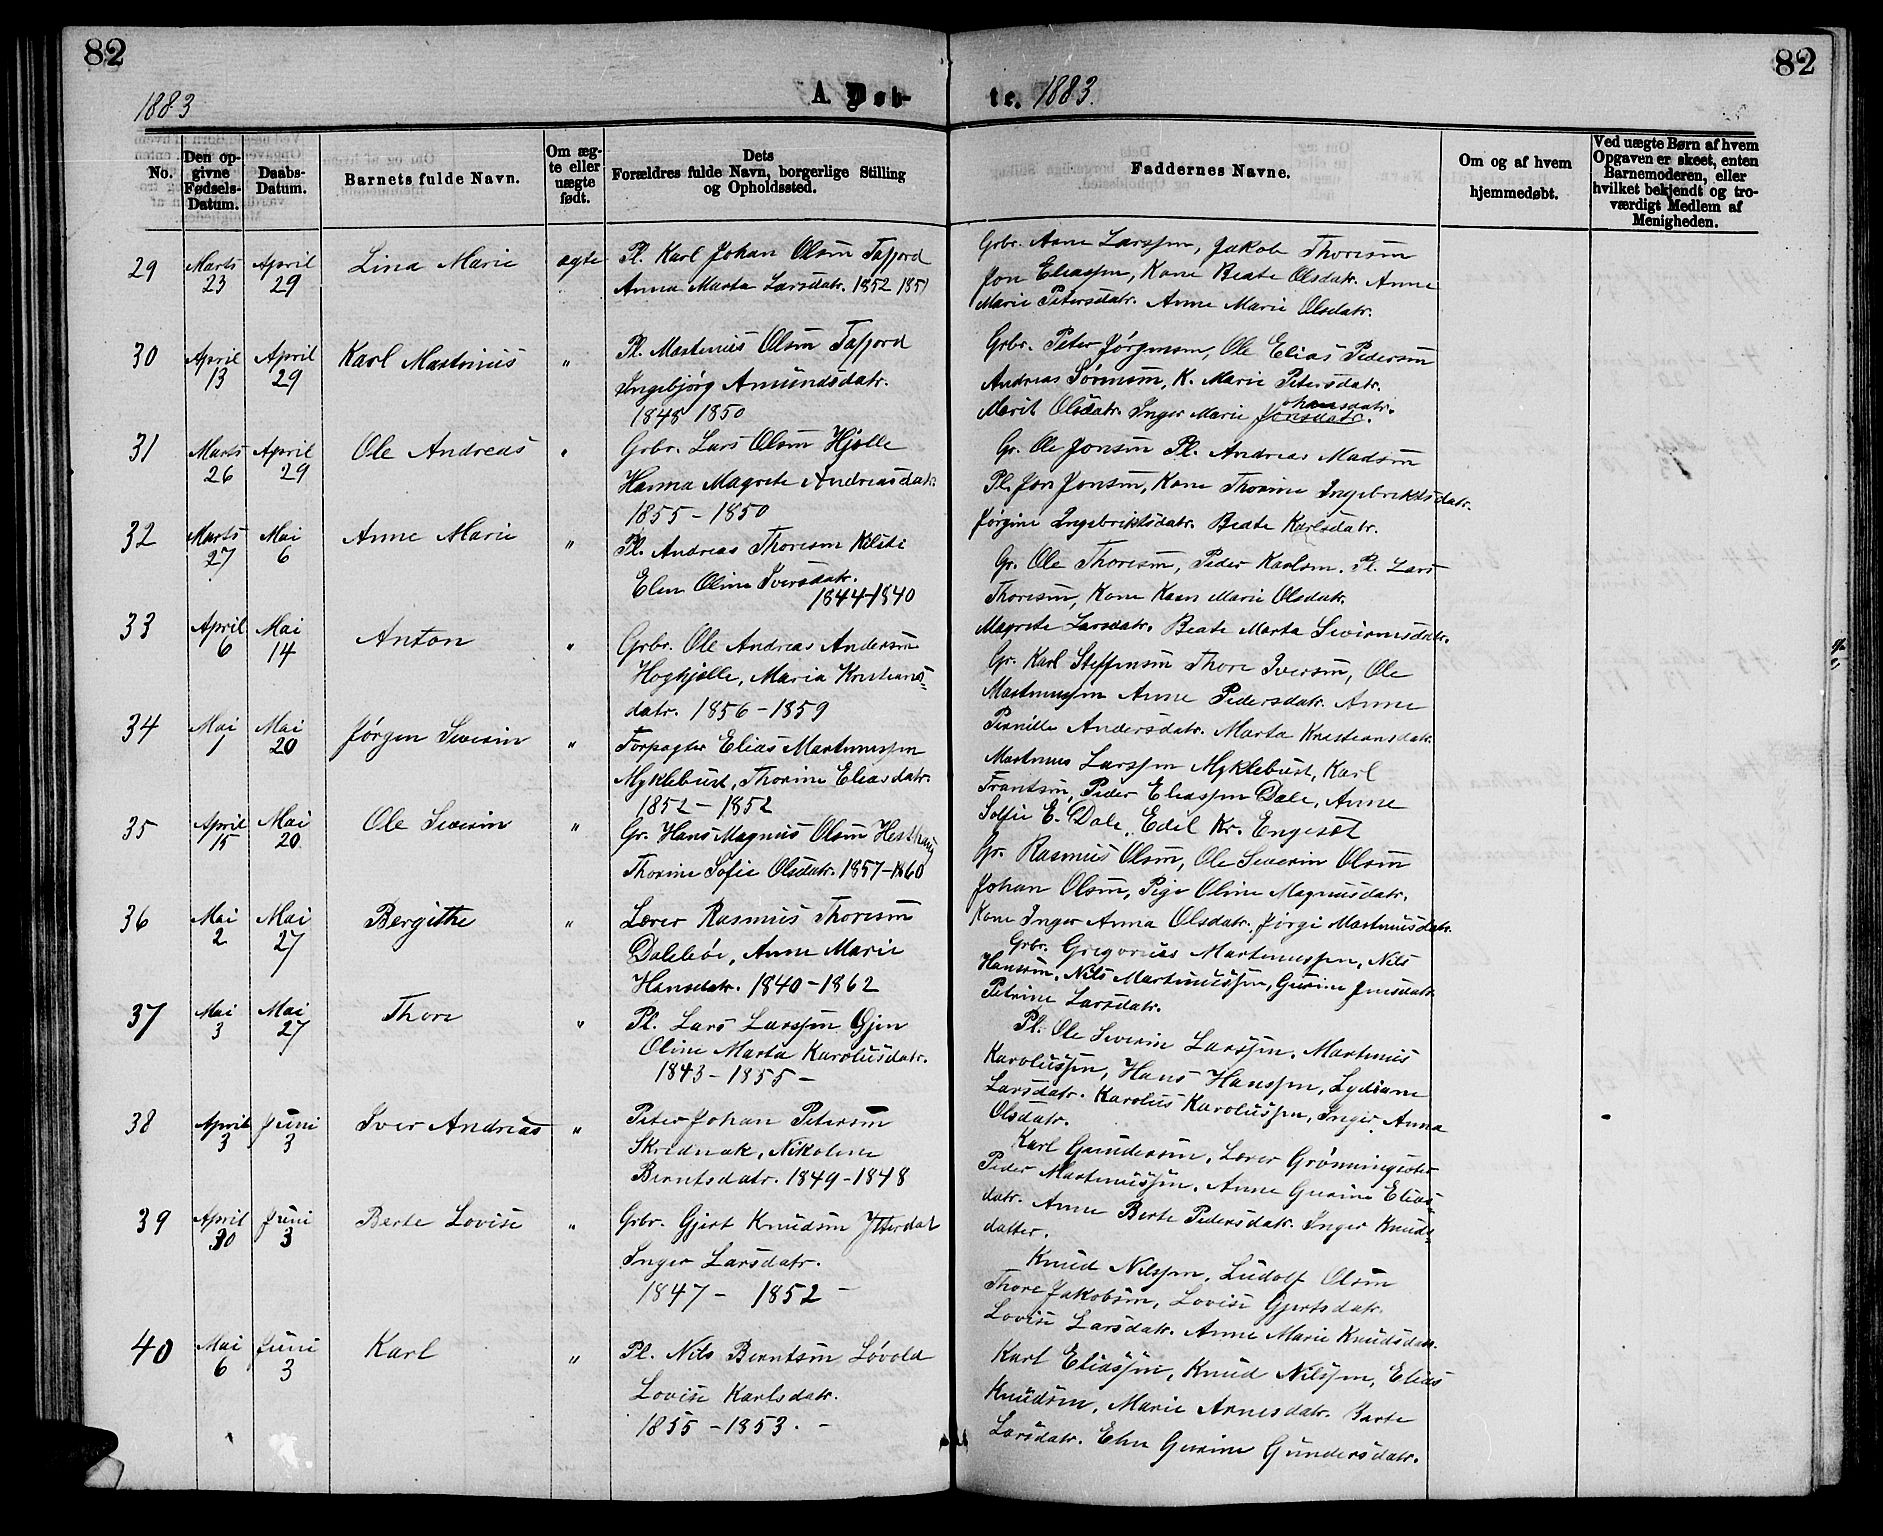 82
82
1883
A. Døb-
te. 1883.
No.
Den op-
givne
Fødsels-
Datum.
Daabs-
Datum.
Barnets fulde Navn.
Om æg-
te eller
uægte
født.
Dets
Forældres fulde Navn, borgerlige Stilling
og Opholdssted.
Faddernes Navne.
Om og af hvem
hjemmedøbt.
Ved uægte Børn af hvem
Opgaven er skeet, enten
Barnemoderen, eller
hvilket bekjendt og tro-
værdigt Medlem af
Menigheden.
29 Marts 23 April 29 Lina Marie ægte
Pl. Karl Johan Olsen Tafjord
Anna Marta Larsdatr. 1852 1851
Grbr. Arne Larssen, Jakob Thoresen
Jon Eliassen, Kone Beate Olsdatr. Anne
Marie Petersdatr. Anne Marie Olsdatr.
30 April 13 April 29 Karl Martinius "
Pl. Martinus Olsen Tafjord
Ingebjørg Amundsdatr.
1848 1850
Grbr. Peter Jørgensen, Ole Elias Pedersen
Andreas Sørensen, K. Marie Petersdatr.
Marit Olsdatr. Inger Marie Johansdatr.
31 Marts 26 April 29 Ole Andreas "
Grbr. Lars Olsen Hjelle
Hanna Magrete Andreasdatr.
1855 - 1850
Gr. Ole Jonsen Pl. Andreas Madsen
Pl. Jon Jonsen, Kone Thorine Ingebriktsdatr.
Jørgine Ingebriktsdatr. Beate Karlsdatr.
32 Marts 27 Mai 6 Anne Marie "
Pl. Andreas Thoresen Kilsti
Elen Oline Iversdatr.
1844-1840
Gr. Ole Thoresen, Peder Karlsen. Pl. Lars
Thoresen, Kone Karen Marie Olsdatr.
Magrete Larsdatr. Beate Marta Sivirinesdatr.
33 April 6 Mai 14 Anton "
Grbr. Ole Andreas Andersen
Hogkjølle, Maria Kristians-
datr. 1856 - 1859
Gr. Karl Steffensen Thore Iversen, Ole
Martinussen Anne Pedersdatr. Anne
Pernille Andersdatr. Marta Kristiansdatr.
34 Mai 1 Mai 20 Jørgen Severin "
Forpagter Elias Martinussen
Myklebust, Thorine Eliasdatr.
1852 - 1852
Martinus Larssen Myklebust, Karl
Frantsen, Peder Eliassen Dale, Anne
Sofie E. Dale, Edel Kr. Engeset
35 April 15 Mai 20 Ole Severin "
Gr. Hans Magnus Olsen Hesthaug
Thorine Sofie Olsdatr. 1857-1860
Gr. Rasmus Olsen, Ole Severin Olsen
Johan Olsen, Pige Oline Magnusdatr.
Kone Inger Anna Olsdatr. Jørgi Martinusdatr.
36 Mai 2 Mai 27 Bergithe "
Lærer Rasmus Thoresen
Dalebøe, Anne Marie
Hansdatr. 1840 - 1862
Grbr. Gregorius Martinussen, Nils
Hanssen, Nils Martinussen, Gurine Jensdatr.
Petrine Larsdatr.
37 Mai 3 Mai 27 Thore "
Pl. Lars Larssen Gjen
Oline Marta Karolusdatr.
1843 - 1855 -
Pl. Ole Severin Larssen, Martinus
Karolussen, Hans Hanssen, Lydiane
Larsdatr. Karolus Karolussen, Inger Anna
Olsdatr.
38 April 3 Juni 3 Iver Andreas "
Peter Johan Petersen
Skrednak, Nikoline
Berntsdatr. 1849-1848
Karl Gundersen, Lærer Grønningsæter
Peder Martinussen, Anne Gurine Elias-
datr. Anne Berte Pedersdatr. Inger Knuds-
datter.
39 April 30 Juni 3 Berte Lovise "
Grbr. Gjert Knudsen Ytterdal
Inger Larsdatr.
1847 - 1852 -
Knud Nilssen, Ludolf Olsen
Thore Jakobsen, Lovise Gjertsdatr.
Lovise Larsdatr. Anne Marie Knudsdatr.
40 Mai 6 Juni 3 Karl "
Pl. Nils Berntsen Løvold
Lovise Karlsdatr.
1855 - 1853. -
Karl Eliassen, Knud Nilssen, Elias
Knudsen, Marie Arnesdatr. Berte
Larsdatr. Elen Gurine Gundersdatr.